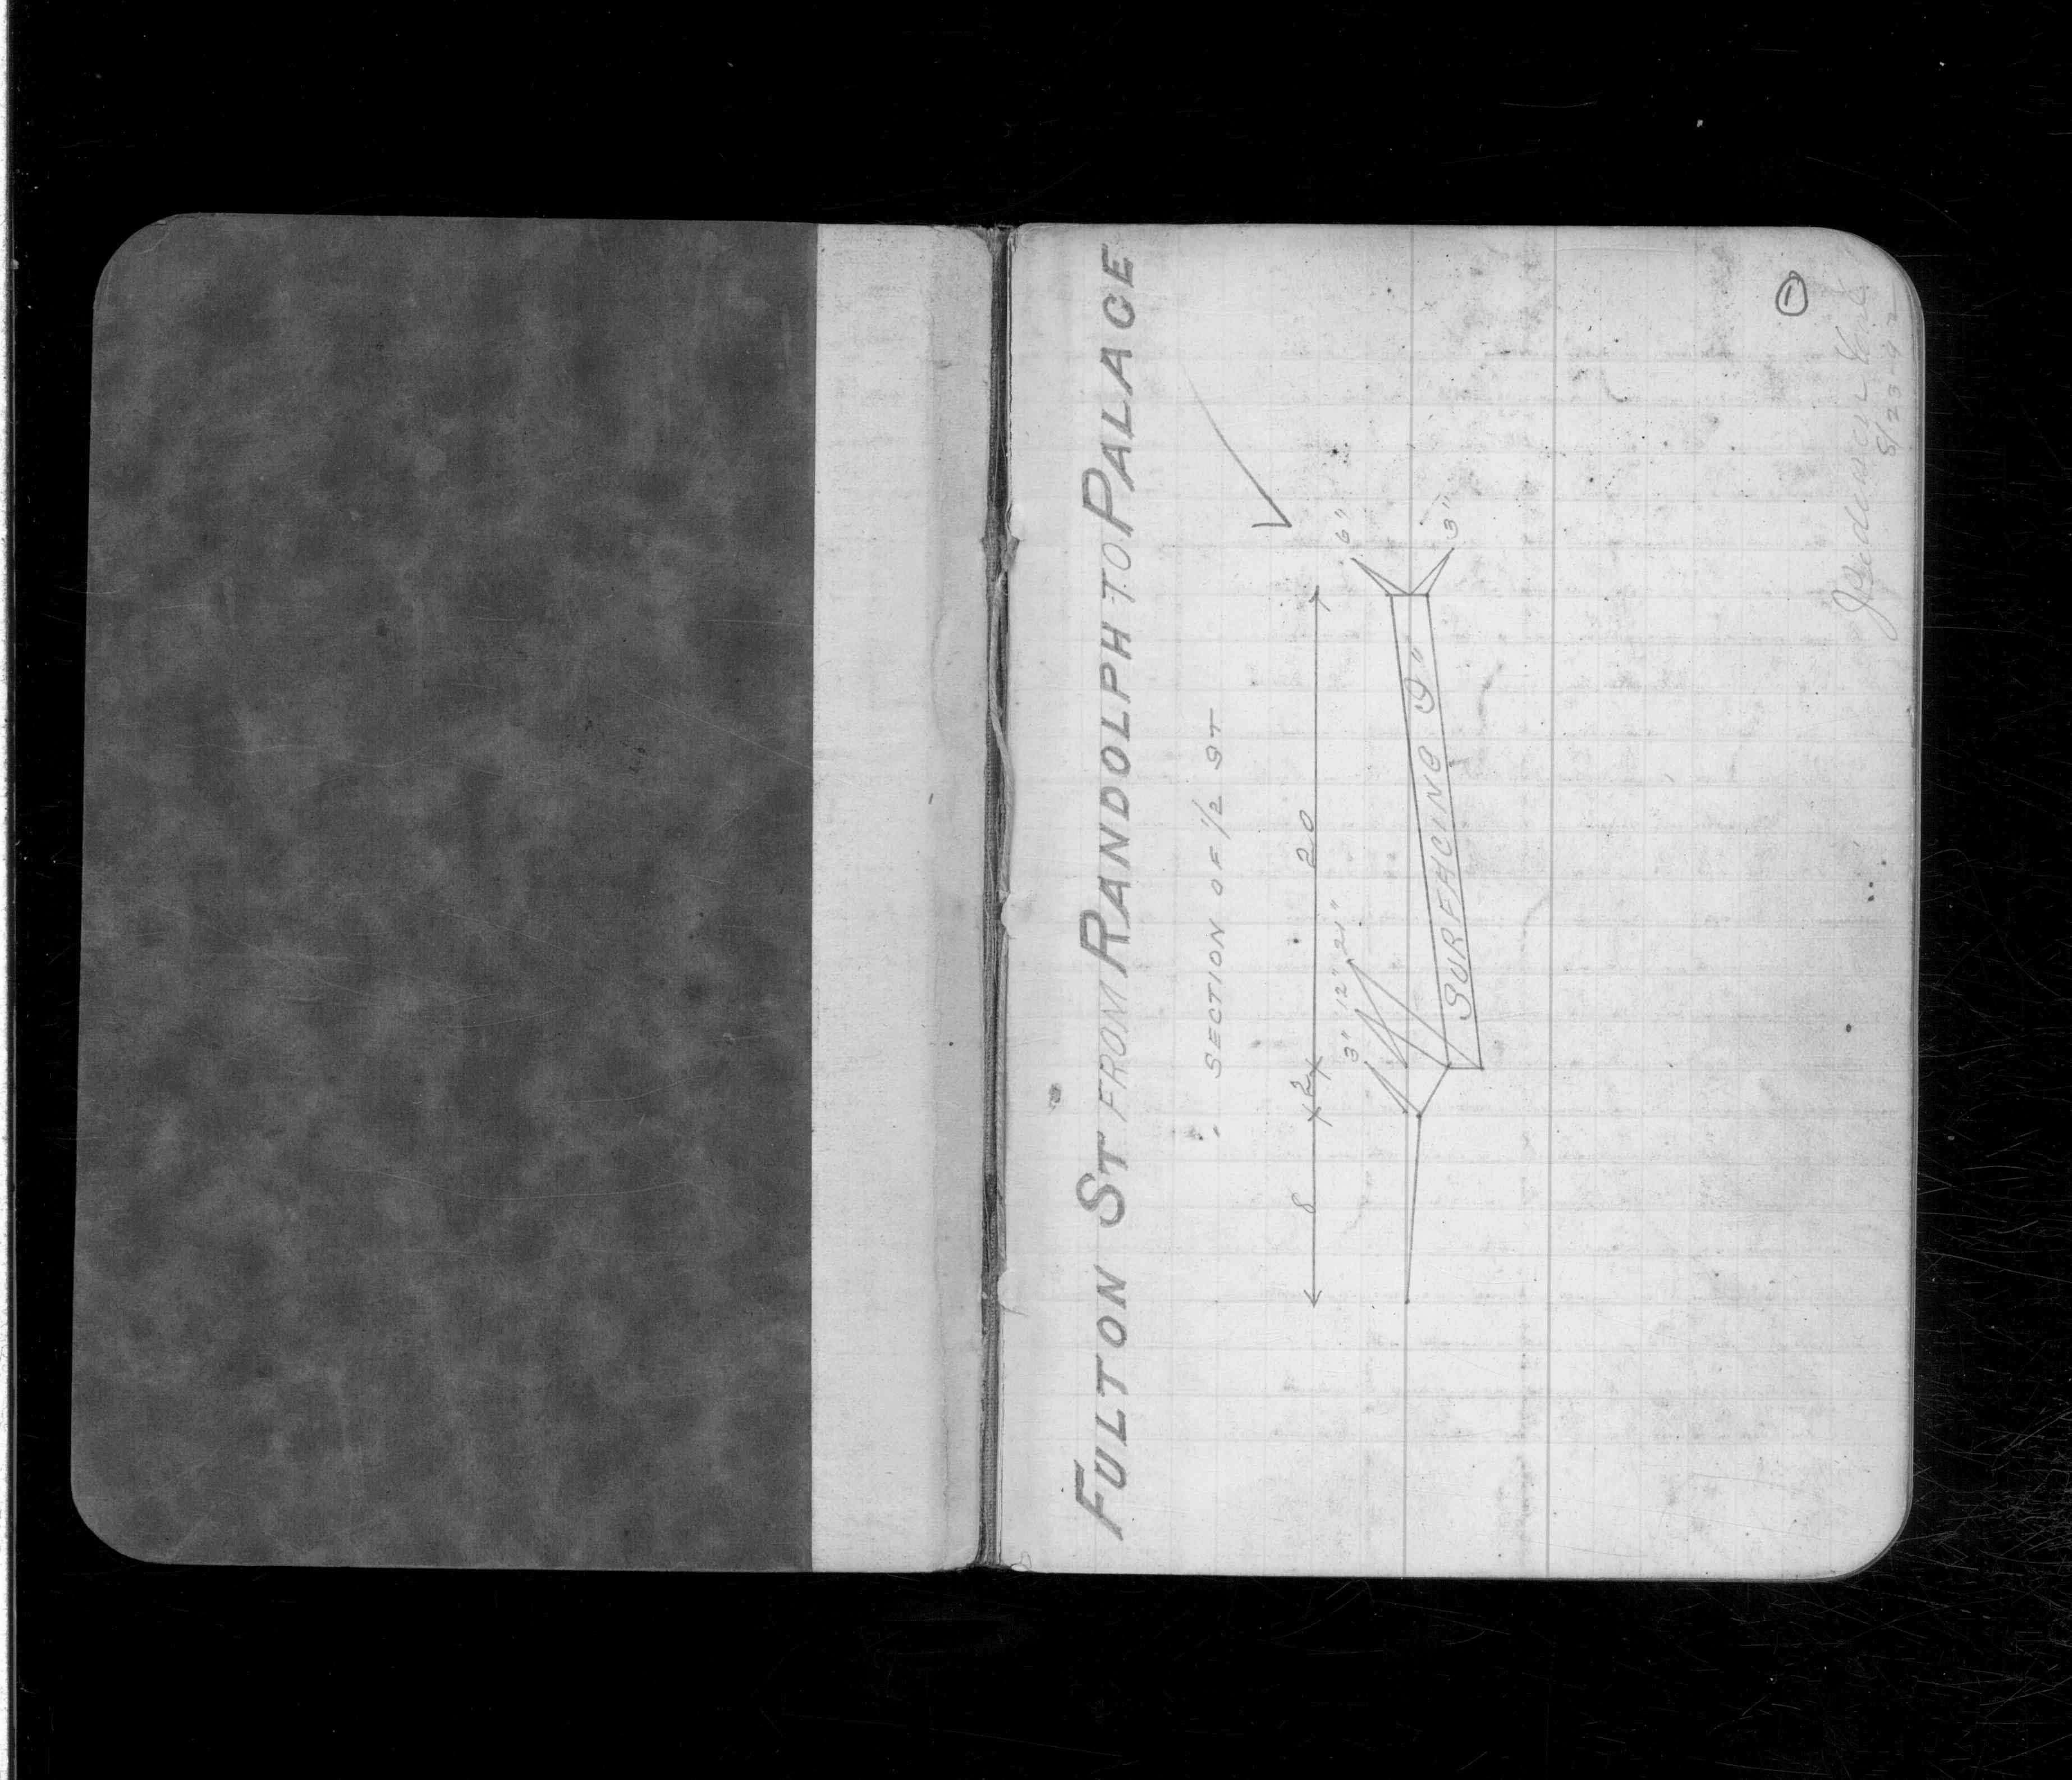 FULTON ST FROM RANDOLPH TO PALACE
SECTION OF 1/2 ST
8 2 20
3" 12" 21" 6"
3"
SURFACING 9"
1
8/23-42